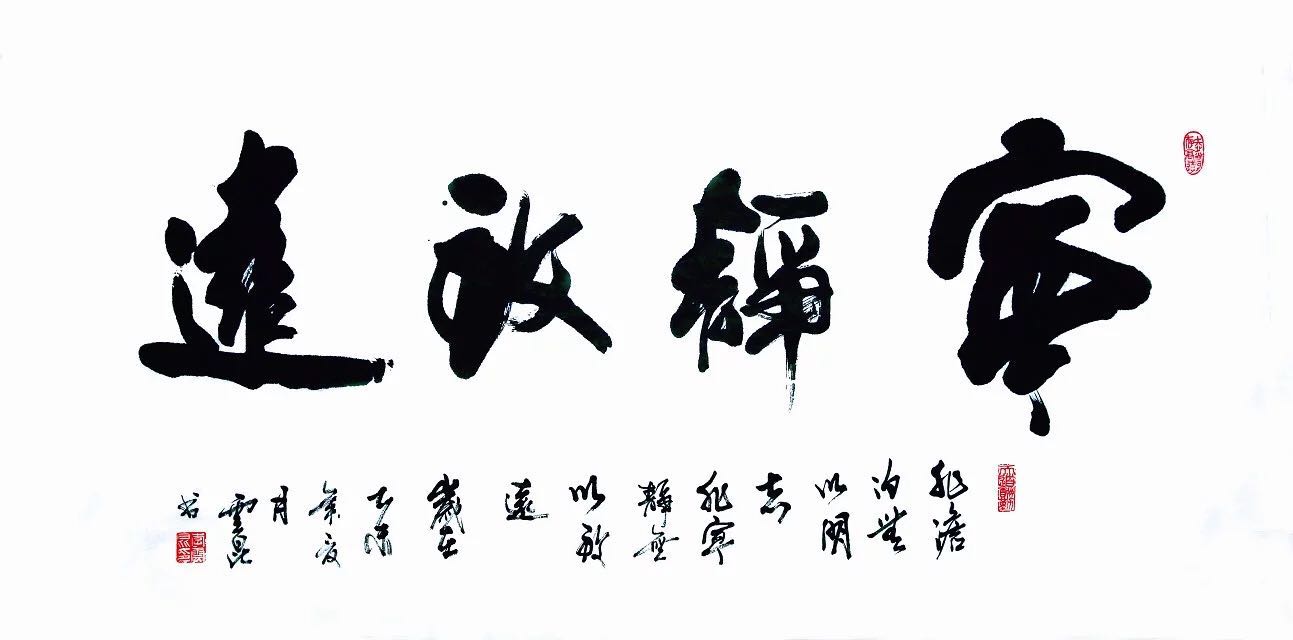 寧靜致遠
非澹
泊無
以明
志
非寧
靜無
以致
遠
歲在
夏
月
雲昆
書